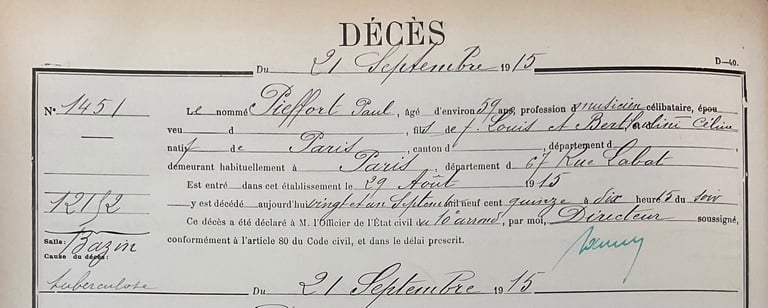 DÉCÈS
Du 21 Septembre 1915
D-40.
N° 1451
Le nommé Pieffort Paul, âgé d'environ 59 ans, profession d musicien célibataire, épou
veu d , fils de f. Louis et Céline
natif de Paris, canton d , département d
demeurant habituellement à Paris, département d 67 Rue Labat
Est entré dans cet établissement le 29 Août 1915
12152
y est décédé aujourd'hui vingt et un Septemb mil neuf cent quinze à dix heure 15 du soir
Ce décès a été déclaré à M. l'Officier de l'État civil du 10e arrond, par moi, Directeur soussigné,
Salle: Bazin
conformément à l'article 80 du Code civil, et dans le délai prescrit.
Cause du décès:
tuberculose
Du 21 Septembre 1915